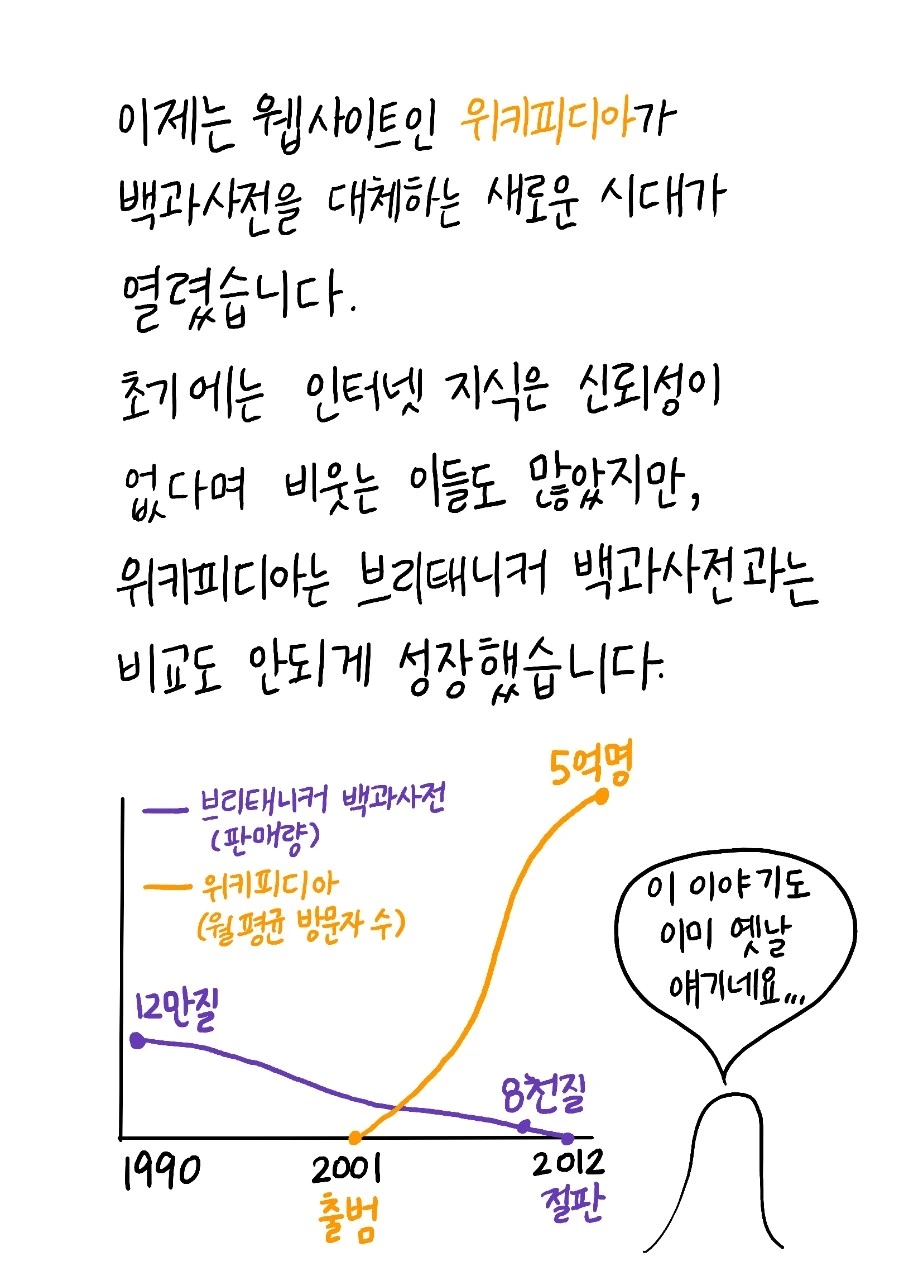 이제는 웹사이트인 위키피디아가
백과사전을 대체하는 새로운 시대가
열렸습니다.
초기에는 인터넷 지식은 신뢰성이
없다며 비웃는 이들도 많았지만,
위키피디아는 브리태니커 백과사전과는
비교도 안되게 성장했습니다.
5억명
브리태니커 백과사전
(판매량)
위키피디아
(월평균 방문자 수)
이 이야기도
이미 옛날
얘기네요...
12만질
8천질
1990
2001
2012
출범
절판